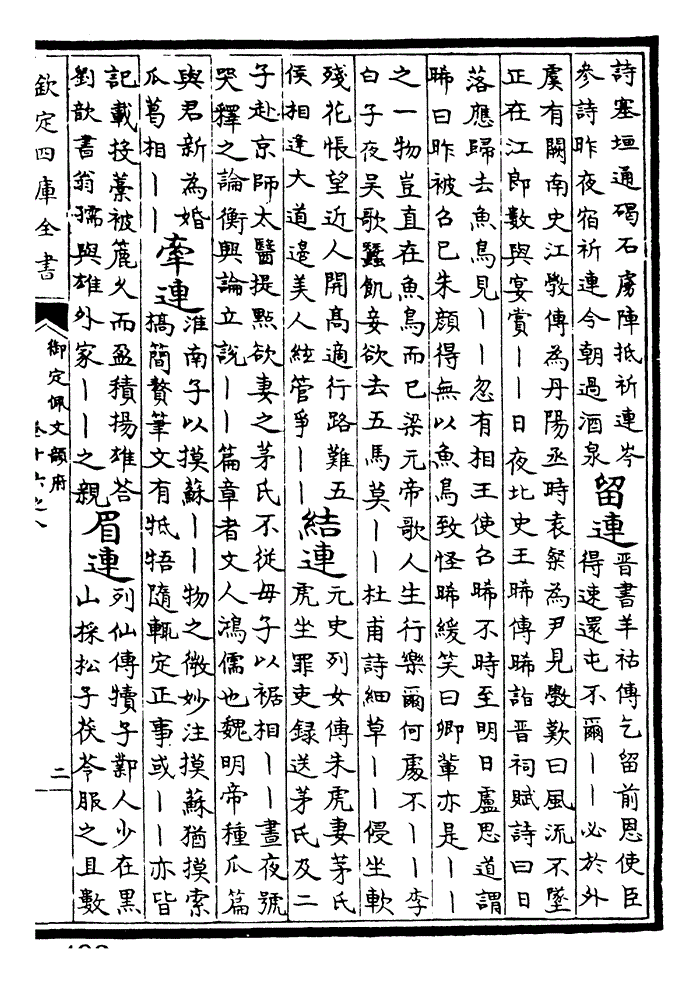 詩塞垣通碣石虜陣抵祈連岑
參詩昨夜宿祈連今朝過酒泉
留連
晋書羊祜傳乞留前恩使臣
得速還屯不爾丨丨必於外
虞有闕南史江斅傳為丹陽丞時袁粲為尹見斅歎曰風流不墜
正在江郎數與宴賞丨丨日夜北史王晞傳晞詣晉祠賦詩曰日
落應歸去魚鳥見丨丨忽有相王使召晞不時至明日盧思道謂
晞曰昨被召已朱顔得無以魚鳥致怪晞緩笑曰卿軰亦是丨丨
之一物豈直在魚鳥而已梁元帝歌人生行樂爾何處不丨丨李
白子夜吳歌蠶飢妾欲去五馬莫丨丨杜甫詩細草丨丨侵坐軟
殘花悵望近人開高適行路難五
侯相逢大道邉美人絃管爭丨丨
結連
元史列女傳朱虎妻茅氏
虎坐罪吏録送茅氏及二
子赴京師太醫提點欲妻之茅氏不從母子以裾相丨丨晝夜號
哭釋之論衡興論立説丨丨篇章者文人鴻儒也魏明帝種瓜篇
與君新為婚
瓜葛相丨丨
牽連
淮南子以摸蘇丨丨物之微妙注摸蘇猶摸索
搞簡贅筆文有牴牾隨輒定正事或丨丨亦皆
記載投藁被簏久而盈積揚雄荅
劉歆書翁孺與雄外家丨丨之親
眉連
列仙傳犢子鄴人少在黑
山採松子茯苓服之且數
欽定四庫全書
御定佩文韻府
卷十六之八
二